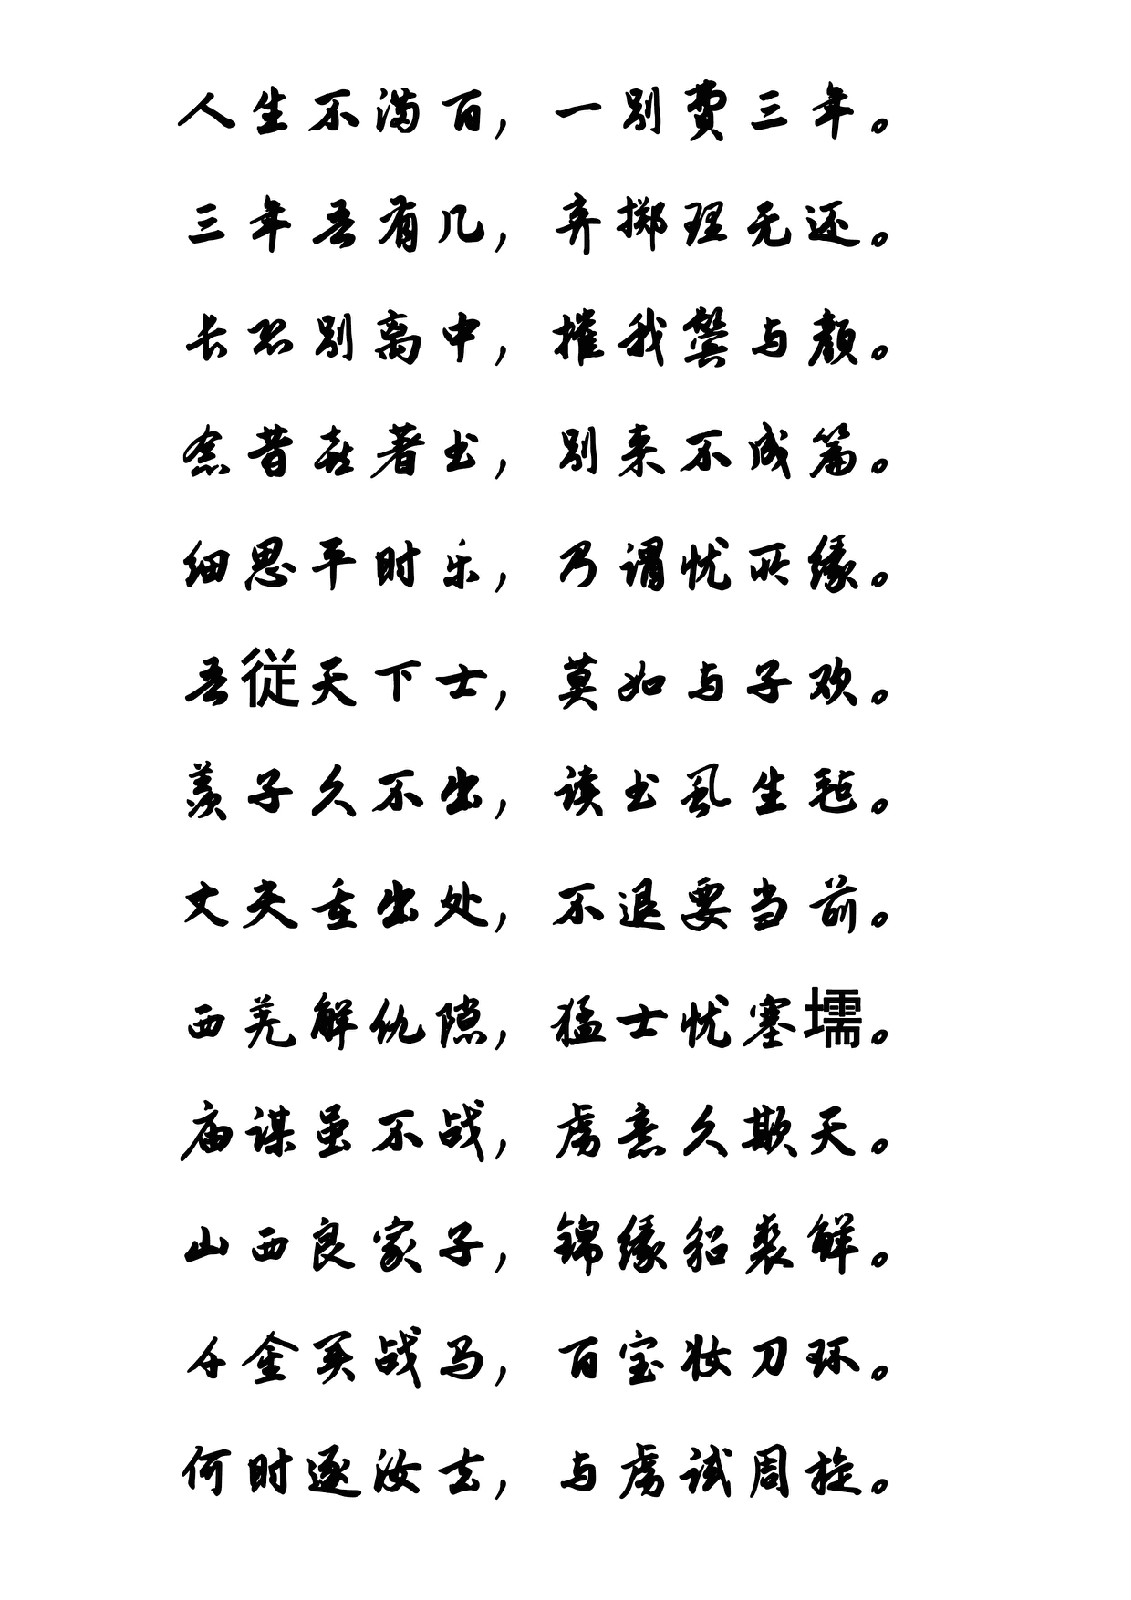 人生不满百，一别费三年。
三年吾有几，弃掷理无还。
长恐别离中，摧我鬓与颜。
念昔喜著书，别来不成篇。
细思平时乐，乃谓忧所缘。
吾従天下士，莫如与子欢。
羡子久不出，读书虱生毡。
丈夫重出处，不退要当前。
西羌解仇隙，猛士忧塞壖。
庙谋虽不战，虏意久欺天。
山西良家子，锦缘貂裘鲜。
千金买战马，百宝妆刀环。
何时逐汝去，与虏试周旋。